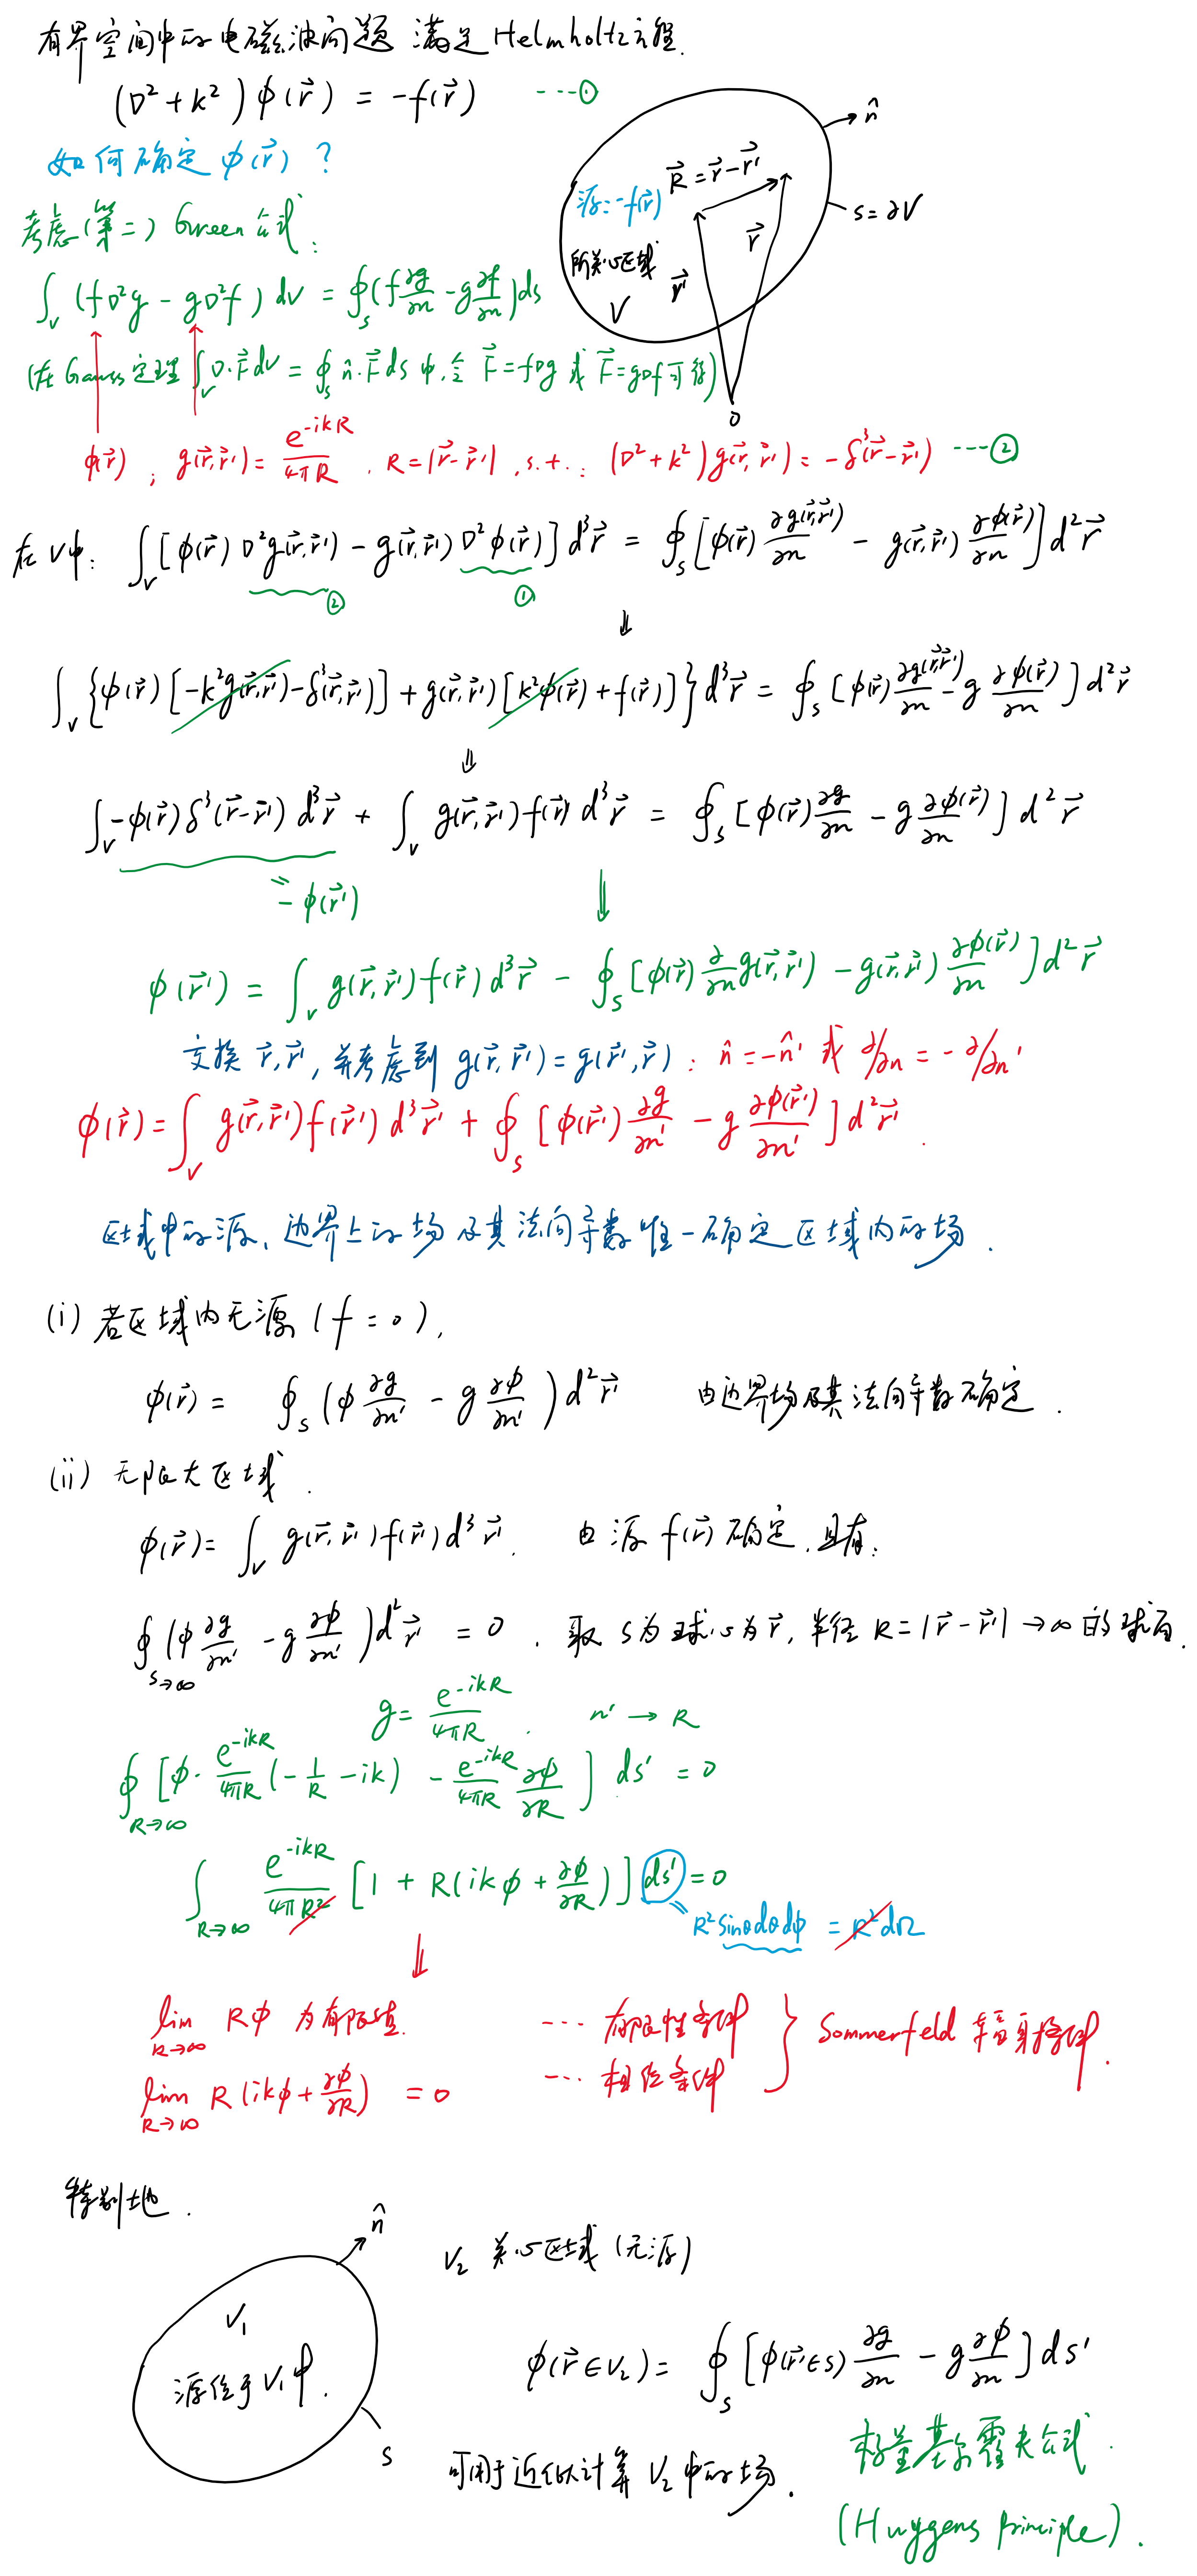 有界空间中的电磁波问题 满足Helmholtz方程.
(∇² + k²) φ(r⃗) = -f(r⃗) ---①
n̂
如何确定 φ(r⃗) ?
R⃗ = r⃗ - r⃗'
源: -f(r⃗)
S = ∂V
r⃗
所关心区域
r⃗'
V
O
考虑(第二) Green公式:
∫_V (f∇²g - g∇²f) dV = ∮_S (f ∂g/∂n - g ∂f/∂n) ds
(在 Gauss 定理 ∫_V ∇·F⃗ dV = ∮_S n̂·F⃗ ds 中,令 F⃗ = f∇g 或 F⃗ = g∇f 可得)
φ(r⃗) ; g(r⃗,r⃗') = e^{-ikR}/4πR , R = |r⃗-r⃗'| , s.t.: (∇² + k²) g(r⃗,r⃗') = -δ³(r⃗-r⃗') ---②
在V中: ∫_V [φ(r⃗) ∇²g(r⃗,r⃗') - g(r⃗,r⃗') ∇²φ(r⃗)] d³r⃗ = ∮_S [φ(r⃗) ∂g(r⃗,r⃗')/∂n - g(r⃗,r⃗') ∂φ(r⃗)/∂n] d²r⃗
② ①
⇓
∫_V {φ(r⃗) [-k²g(r⃗,r⃗') - δ³(r⃗,r⃗')] + g(r⃗,r⃗') [k²φ(r⃗) + f(r⃗)]} d³r⃗ = ∮_S [φ(r⃗) ∂g(r⃗,r⃗')/∂n - g ∂φ(r⃗)/∂n] d²r⃗
⇓
∫_V -φ(r⃗) δ³(r⃗-r⃗') d³r⃗ + ∫_V g(r⃗,r⃗') f(r⃗) d³r⃗ = ∮_S [φ(r⃗) ∂g/∂n - g ∂φ(r⃗)/∂n] d²r⃗
= -φ(r⃗')
⇓
φ(r⃗') = ∫_V g(r⃗,r⃗') f(r⃗) d³r⃗ - ∮_S [φ(r⃗) ∂/∂n g(r⃗,r⃗') - g(r⃗,r⃗') ∂φ(r⃗)/∂n] d²r⃗
交换 r⃗,r⃗', 并考虑到 g(r⃗,r⃗') = g(r⃗',r⃗) : n̂ = -n̂' 或 ∂/∂n = -∂/∂n'
φ(r⃗) = ∫_V g(r⃗,r⃗') f(r⃗') d³r⃗' + ∮_S [φ(r⃗') ∂g/∂n' - g ∂φ(r⃗')/∂n'] d²r⃗' .
区域中的源、边界上的场及其法向导数唯一确定区域内的场.
(i) 若区域内无源 (f = 0),
φ(r⃗) = ∮_S (φ ∂g/∂n' - g ∂φ/∂n') d²r⃗' 由边界场及其法向导数确定.
(ii) 无限大区域.
φ(r⃗) = ∫_V g(r⃗,r⃗') f(r⃗') d³r⃗'. 由源 f(r⃗) 确定,且有:
∮_{S→∞} (φ ∂g/∂n' - g ∂φ/∂n') d²r⃗' = 0 . 取 S为球心为 r⃗, 半径 R = |r⃗-r⃗'| → ∞ 的球面.
g = e^{-ikR}/4πR . n' → R
∮_{R→∞} [φ· e^{-ikR}/4πR (-1/R - ik) - e^{-ikR}/4πR ∂φ/∂R] ds' = 0
∫_{R→∞} e^{-ikR}/4πR² [1 + R(ikφ + ∂φ/∂R)] ds' = 0
= R² sinθdθdφ = R²dΩ
⇓
lim_{R→∞} Rφ 为有限值. --- 有限性条件
lim_{R→∞} R (ikφ + ∂φ/∂R) = 0 --- 相位条件
} Sommerfeld 辐射条件.
特别地.
n̂
V₂ 关心区域 (无源)
V₁
源位于V₁中.
S
φ(r⃗∈V₂) = ∮_S [φ(r⃗'∈S) ∂g/∂n - g ∂φ/∂n] ds'
标量基尔霍夫公式.
可用于近似计算 V₂ 中的场.
(Huygens Principle).